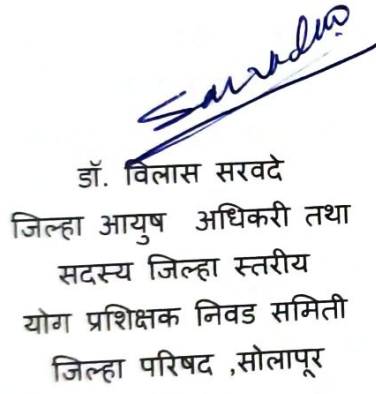 Sarvade
डॉ. विलास सरवदे
जिल्हा आयुष अधिकरी तथा
सदस्य जिल्हा स्तरीय
योग प्रशिक्षक निवड समिती
जिल्हा परिषद ,सोलापूर